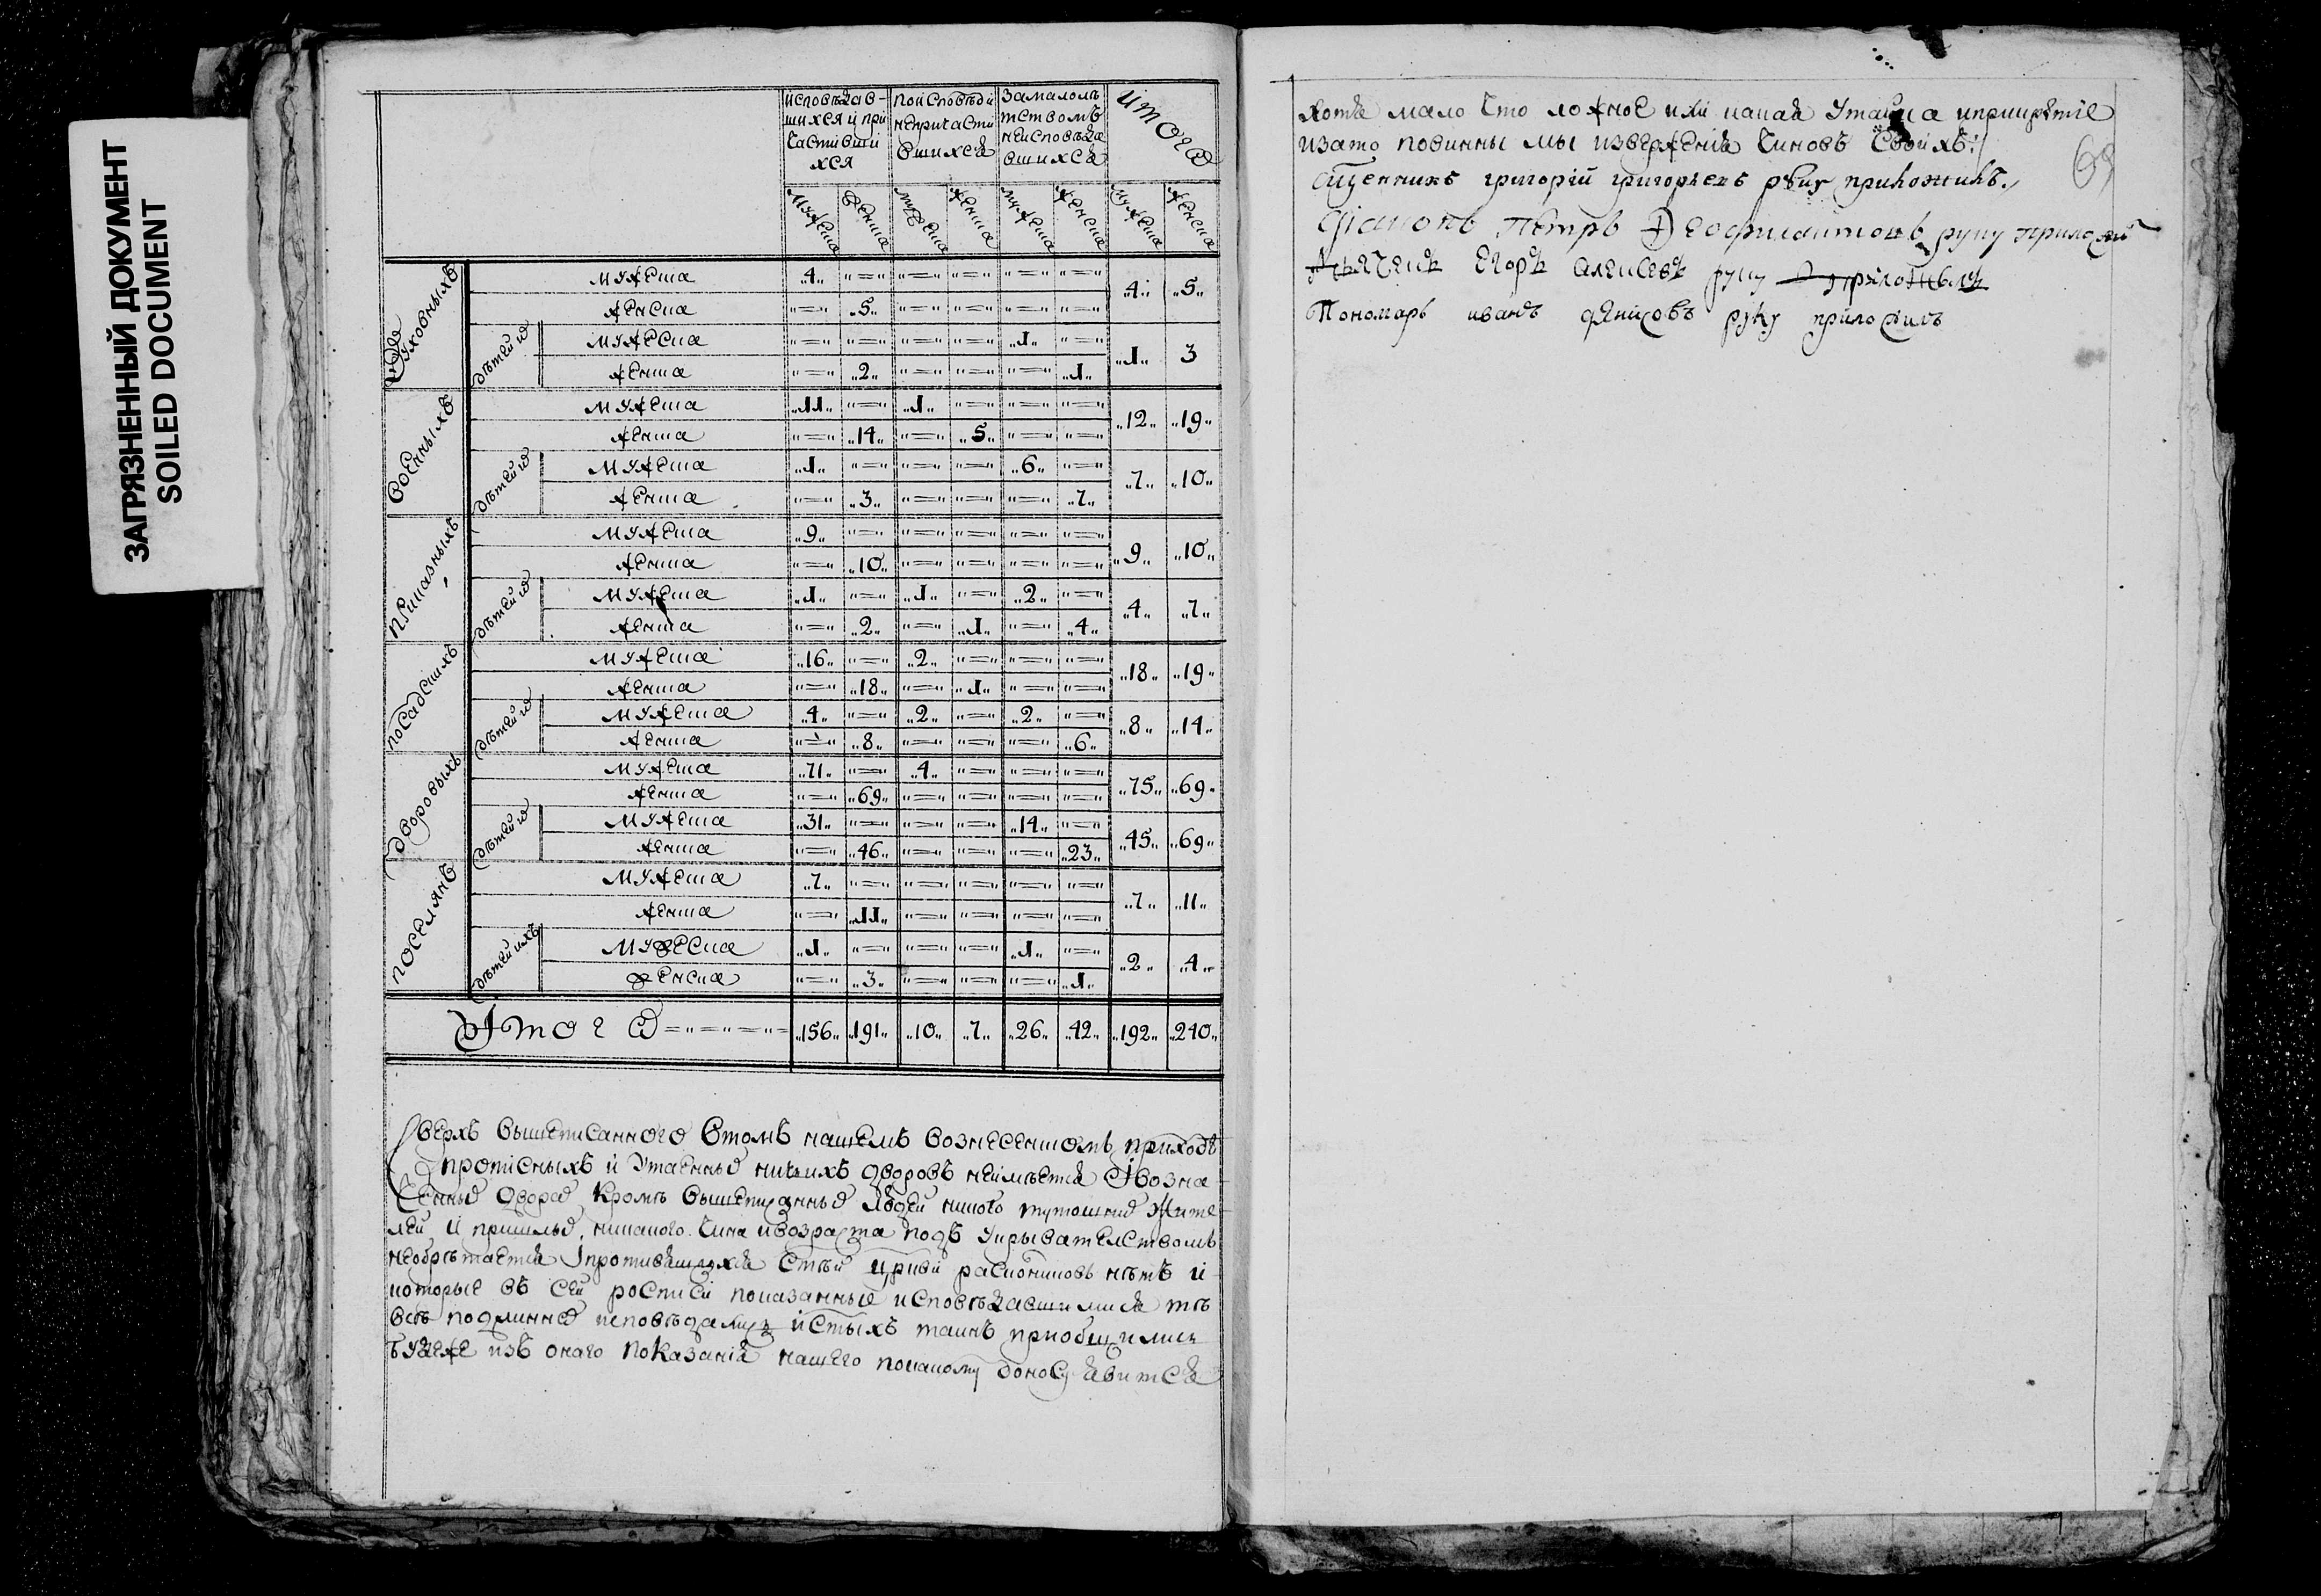 ЗАГРЯЗНЕННЫЙ ДОКУМЕНТ
SOILED DOCUMENT
исповѣдав-
шихся и при
частивши
хся
по исповѣди
непричасти
вшихся
за малолѣ
тствомъ
неисповѣда
вшихся
итого
мужеска женска мужеска женска мужеска женска мужеска женска
духовныхъ
мужеска 4 4 5
женска 5
дѣтей и
мужеска 1 1 3
женска 2 1
военныхъ
мужеска 11 1 12 19
женска 14 5
дѣтей и
мужеска 1 6 7 10
женска 3 7
приказныхъ
мужеска 9 9 10
женска 10
дѣтей и
мужеска 1 1 2 4 7
женска 2 1 4
посадскихъ
мужеска 16 2 18 19
женска 18 1
дѣтей и
мужеска 4 2 2 8 14
женска 8 6
дворовыхъ
мужеска 71 4 75 69
женска 69
дѣтей и
мужеска 31 14 45 69
женска 46 23
поселянъ
мужеска 7 7 11
женска 11
дѣтей ихъ
мужеска 1 1 2 4
женска 3 1
Итого 156 191 10 7 26 42 192 240
Сверхъ вышеписанного втомъ нашемъ вознесенскомъ приходѣ
прописныхъ и утаенных никакихъ дворовъ неимѣется и возна
ченных дворах кромѣ вышеписанных людей никого тутошних жите
лей и пришлых никакого чина ивозраста подъ укрывателствомъ
необрѣтается и противящихся стѣй цркви расколниковъ нѣтъ и
которые въ сей росписи показанные исповѣдавшимися тѣ
всѣ подлинно исповѣдались и стыхъ таинъ приобщились
будеже изъ онаго показанія нашего покакому доносу явится
хотя мало что ложное или какая утайка
изато повинны мы изверженія чиновъ своихъ
69
сщенникъ григорій григорьевъ руку приложилъ
діаконъ петръ Феофилактовъ руку приложилъ
дьячекъ егоръ алексеевъ руку приложилъ
Пономарь иванъ денисовъ руку приложилъ